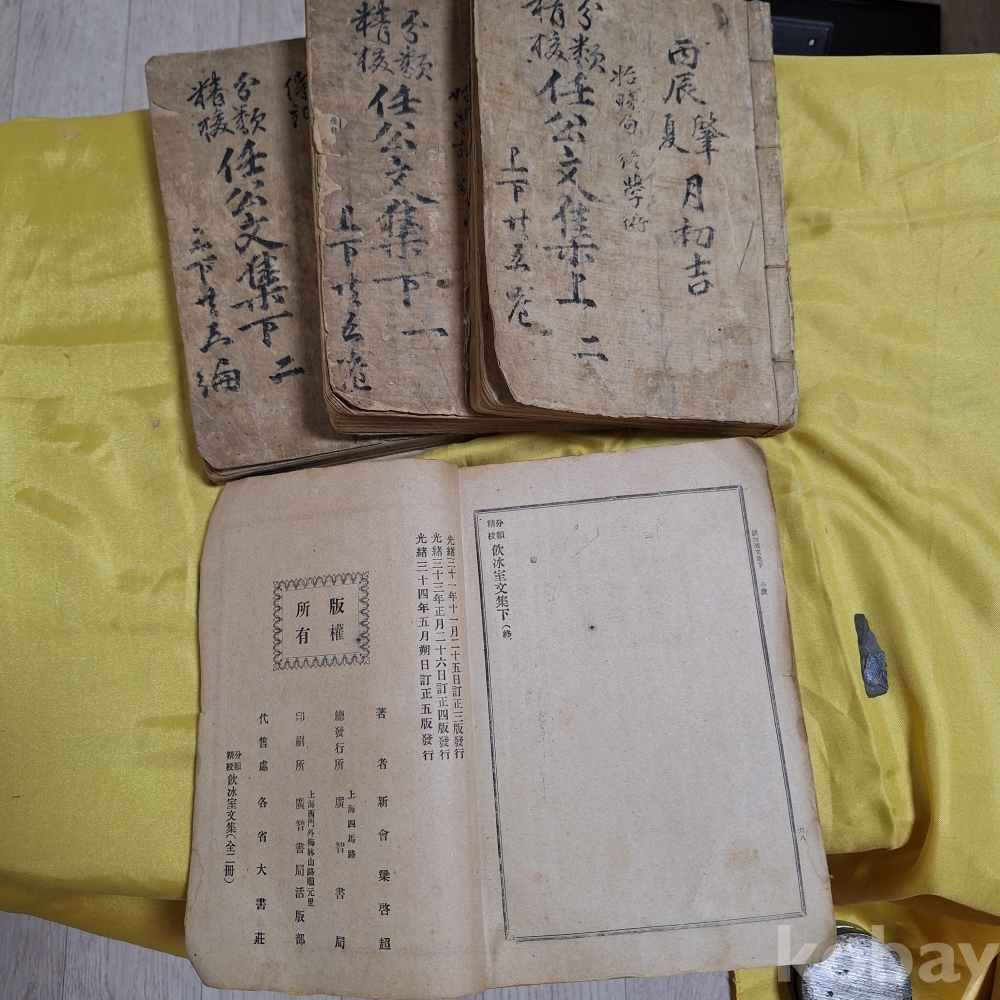 丙辰夏
肇月初吉
終學術
分類
精校
任公文集上 二
上下廿五卷
分類
精校
任公文集下 一
上下廿五卷
分類
精校
任公文集下 二
上下廿五編
小說
六八
分類
精校
飲冰室文集下(終
光緒三十一年十一月二十五日訂正三版發行
光緒三十三年正月二十六日訂正四版發行
光緒三十四年五月朔日訂正五版發行
版權
所有
著者 新會梁啓超
總發行所 上海四馬路 廣智書局
印刷所 上海西門外梅林山路順元里 廣智書局活版部
代售處 各省大書莊
分類
精校
飲冰室文集(全二冊)
kobay